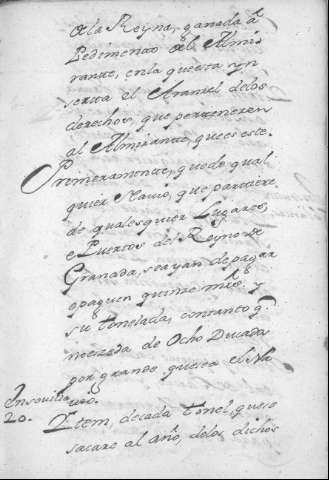 de la Reyna, ganada à
Pedimento del Almi
rante, en la que esta yn
serta el Aranzel delos
derechos, que pertenezen
al Almirante, que es este.
Primeramente, que de qual
quier Navio, que partiere
de qualesquier Lugares,
e Puertos del Reyno de
Granada, se ayan de pagar
y paguen quinze mrs. y
su tonelada, con tanto q.
no exzeda de Ocho Ducados
por grande que sea el Na
vio.
En sevilla
20.
Ytem, de cada tonel, que se
sacare al año, delos dichos